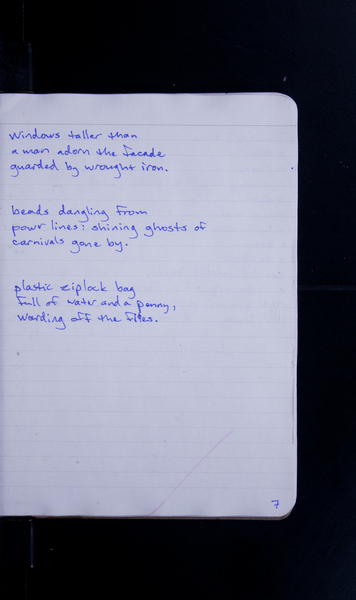 Windows taller than
a man adorn the facade
guarded by wrought iron.
beads dangling from
powr lines: shining ghosts of
carnivals gone by.
plastic ziplock bag
full of water and a penny,
warding off the flies.
7